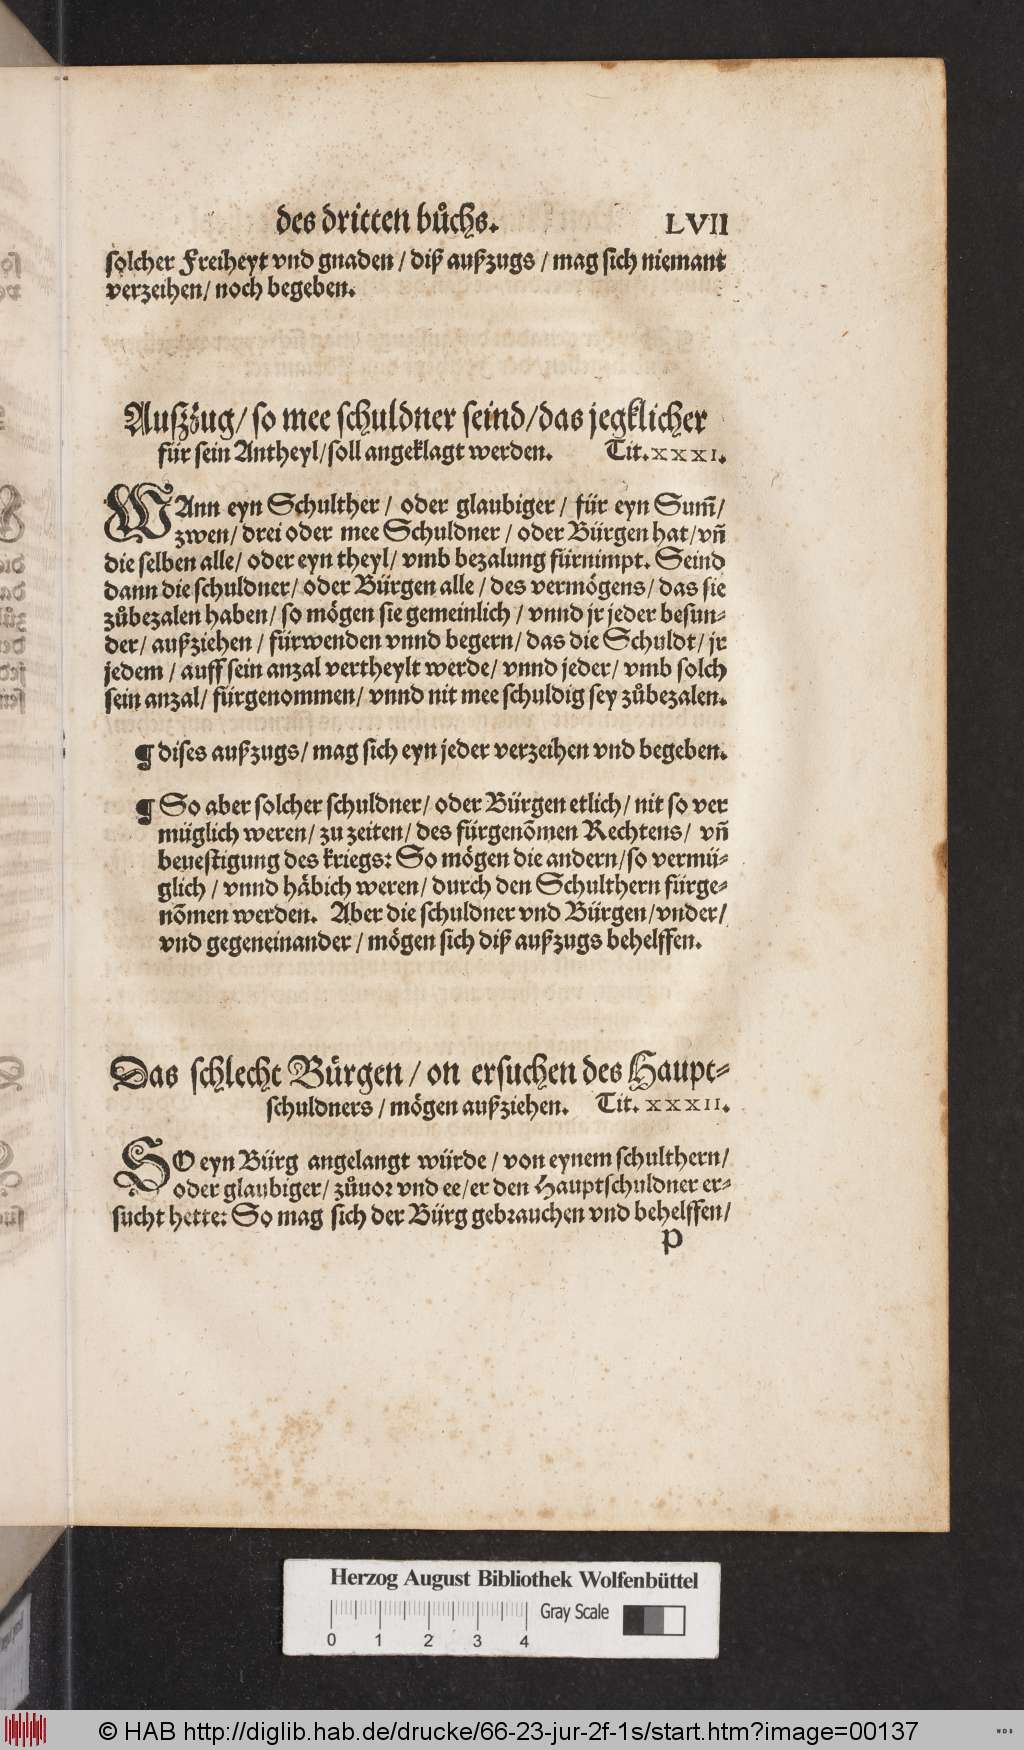 des dritten bůchs. LVII
solcher Freiheyt vnd gnaden / diß außzugs / mag sich niemant
verzeihen / noch begeben.
Außzüg / so mee schuldner seind / das jegklicher
für sein Antheyl / soll angeklagt werden. Tit. XXXI.
WAnn eyn Schulther / oder glaubiger / für eyn Sum̃ /
zwen / drei oder mee Schuldner / oder Bürgen hat / vñ
die selben alle / oder eyn theyl / vmb bezalung fürnimpt. Seind
dann die schuldner / oder Bürgen alle / des vermögens / das sie
zůbezalen haben / so mögen sie gemeinlich / vnnd jr jeder besun-
der / außziehen / fürwenden vnnd begern / das die Schuldt / jr
jedem / auff sein anzal vertheylt werde / vnnd jeder / vmb solch
sein anzal / fürgenommen / vnnd nit mee schuldig sey zůbezalen.
¶ dises außzugs / mag sich eyn jeder verzeihen vnd begeben.
¶ So aber solcher schuldner / oder Bürgen etlich / nit so ver
müglich weren / zu zeiten / des fürgenõmen Rechtens / vñ
beuestigung des kriegs: So mögen die andern / so vermü-
glich / vnnd häbich weren / durch den Schulthern fürge-
nõmen werden. Aber die schuldner vnd Bürgen / vnder /
vnd gegeneinander / mögen sich diß außzugs behelffen.
Das schlecht Bürgen / on ersuchen des Haupt-
schuldners / mögen außziehen. Tit. XXXII.
SO eyn Bürg angelangt würde / von eynem schulthern /
oder glaubiger / zůuor vnd ee / er den Hauptschuldner er-
sucht hette: So mag sich der Bürg gebrauchen vnd behelffen /
p
Herzog August Bibliothek Wolfenbüttel
Gray Scale
0 1 2 3 4
© HAB http://diglib.hab.de/drucke/66-23-jur-2f-1s/start.htm?image=00137